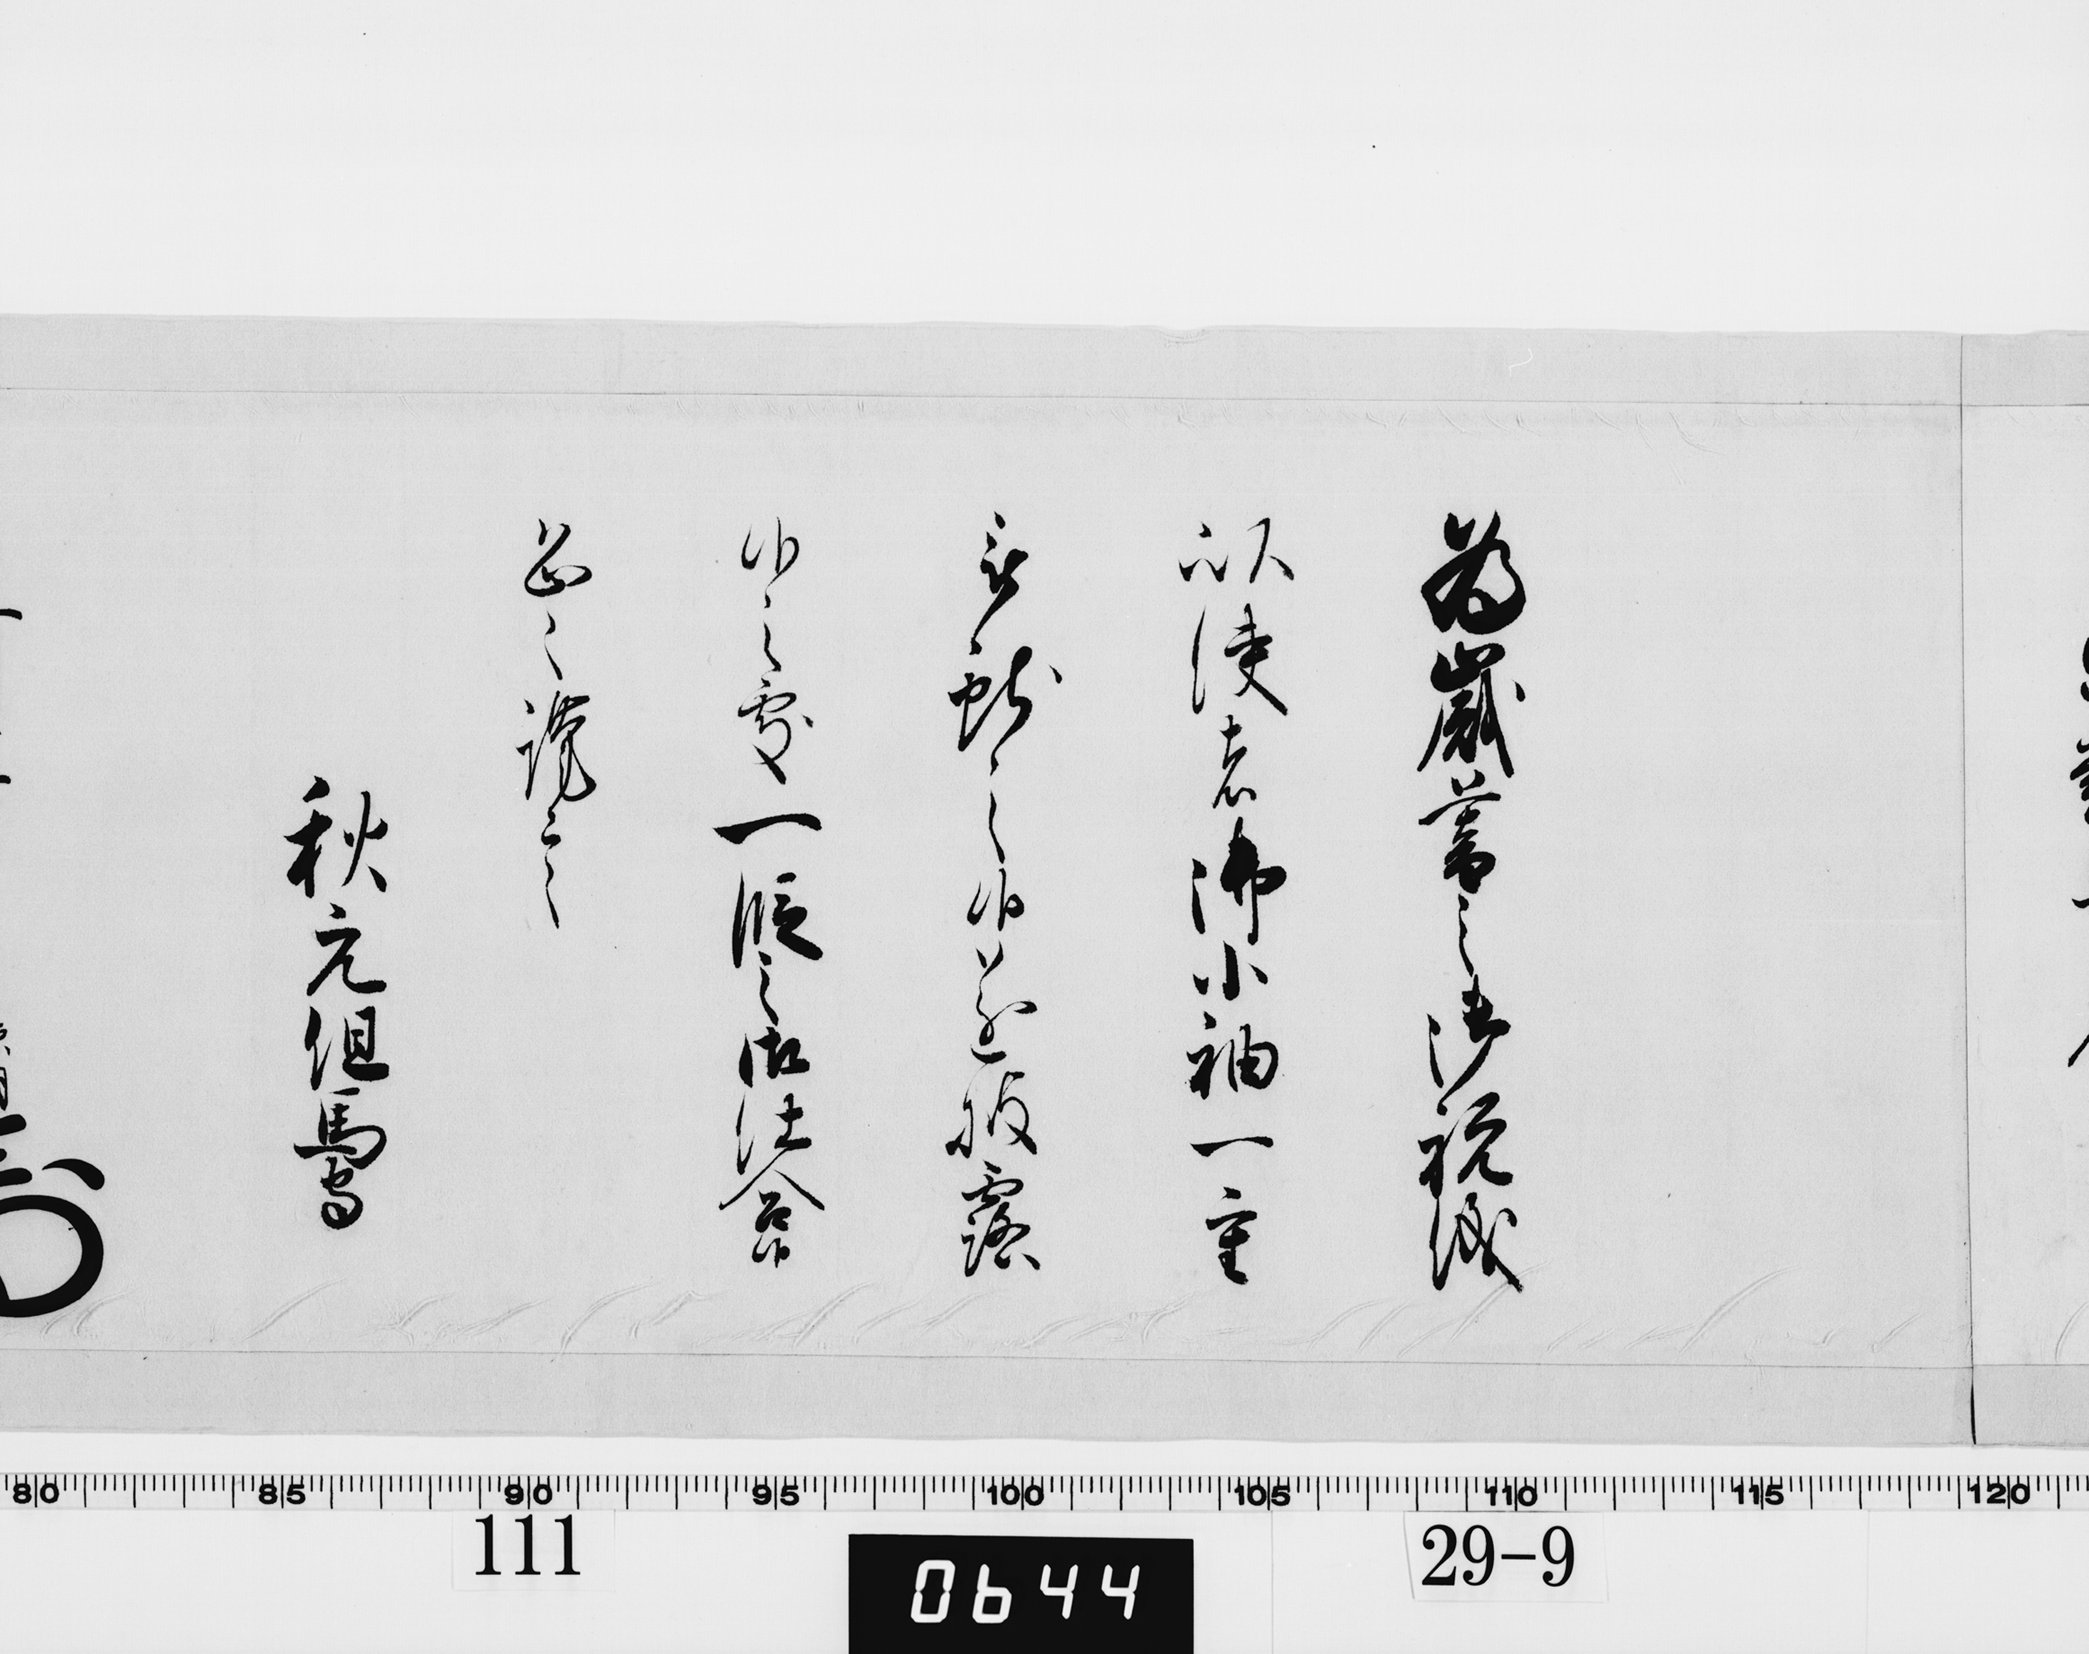 為歳暮之御祝儀
以使者御小袖一重
被献之候遂披露
候之處一段之御仕合候
恐々謹言
秋元但馬守
80 85 90 95 100 105 110 115 120
111
0644
29-9